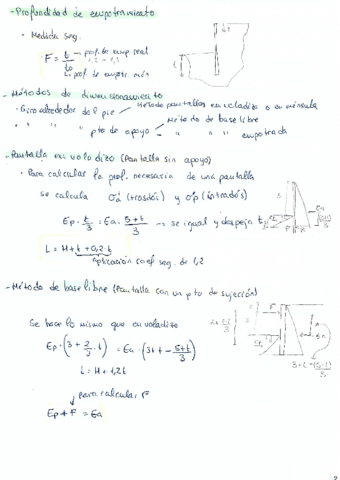 - Profundidad de empotramiento
• Medida seg.
F = t/to → prof. de emp real
1,2 - 1,3
prof de empotr. mín
- Métodos de dimensionamiento
• Giro alrededor del pie — Método pantallas en voladizo o en ménsula
" " pto de apoyo — Método de base libre
" " empotrada
- Pantalla en voladizo (Pantalla sin apoyo)
• Para calcular la prof. necesaria de una pantalla
se calcula σa' (trasdós) y σp' (intradós)
Ep · t/3 = Ea · 5+t/3 → se igual y despeja t
L = H + t + 0,2·t
Aplicación coef seg. de 1,2
- Método de base libre (Pantalla con un pto de sujección)
Se hace lo mismo que en voladizo
Ep · (3 + 2/3 · t) = Ea · (3+t - 5+t/3)
L = H + 1,2t
para calcular F
Ep + F = Ea